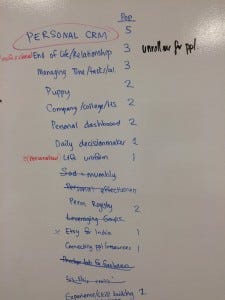 Pop
PERSONAL CRM 5
End of Life/Relationship 3 unroller for ppl.
Managing Time/tasks/cal. 3
Puppy 2
Company/college/HS 2
Personal dashboard 2
Daily decisionmaker 2
Life uniform 1
Sad + mumbly
Personal effectiveness
Perm Registry 2
Leveraging Groups
Etsy for India 1
Connecting ppl + resources 1
Experience/skill building 2